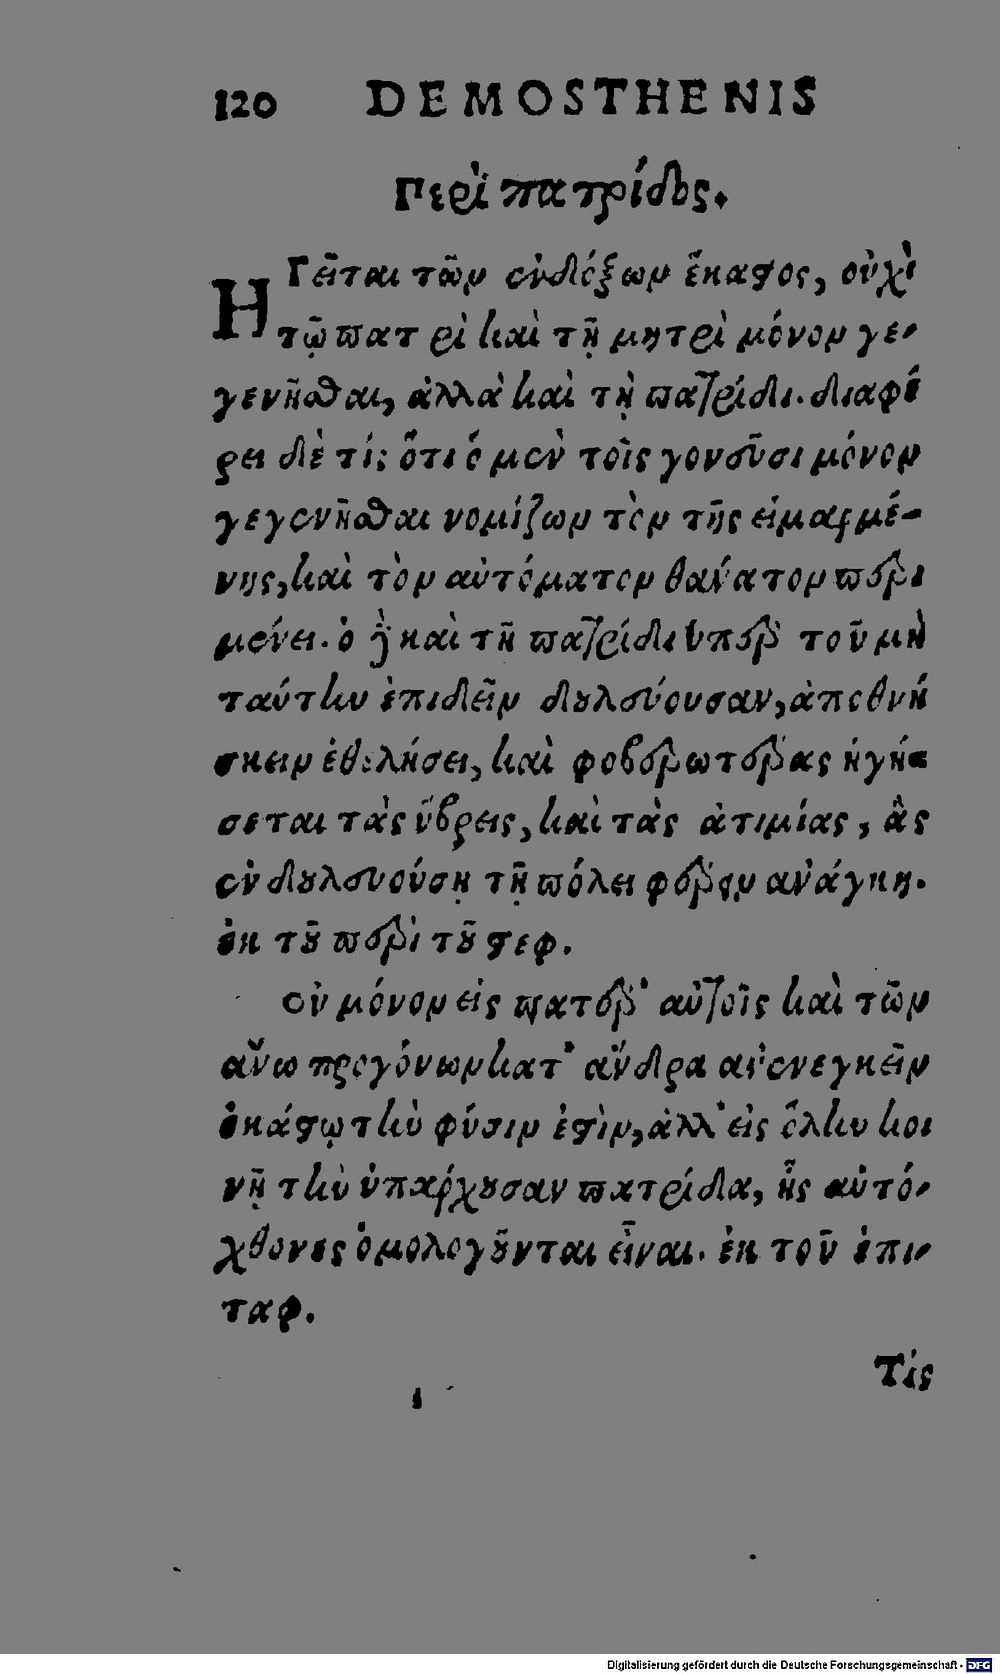 120 DEMOSTHENIS
Περὶ πατρίδος.
ΗΓεῖται τῶν ἐνδόξων ἕκαστος, οὐχὶ
τῷ πατρὶ καὶ τῇ μητρὶ μόνον γε-
γενῆσθαι, ἀλλὰ καὶ τῇ πατρίδι. διαφέ
ρει δὲ τί; ὅτι ὁ μὲν τοῖς γονεῦσι μόνον
γεγενῆσθαι νομίζων τὸν τῆς εἱμαρμέ-
νης, καὶ τὸν αὐτόματον θάνατον περι
μένει. ὁ δὲ καὶ τῇ πατρίδι ὑπὲρ τοῦ μὴ
ταύτην ἐπιδεῖν δουλεύουσαν, ἀποθνή
σκειν ἐθελήσει, καὶ φοβερωτέρας ἡγή-
σεται τὰς ὕβρεις, καὶ τὰς ἀτιμίας, ἃς
ἐν δουλευούσῃ τῇ πόλει φέρειν ἀνάγκη.
ἐκ τοῦ περὶ τοῦ στεφ.
Οὐ μόνον εἰς πατέρ' αὐτοῖς καὶ τῶν
ἄνω προγόνων κατ' ἄνδρα ἀνενεγκεῖν
ἑκάστῳ τὴν φύσιν ἐστὶν, ἀλλ' εἰς ὅλην κοι
νῇ τὴν ὑπάρχουσαν πατρίδα, ἧς αὐτό-
χθονες ὁμολογοῦνται εἶναι. ἐκ τοῦ ἐπι-
ταφ.
Τίς
Digitalisierung gefördert durch die Deutsche Forschungsgemeinschaft - DFG